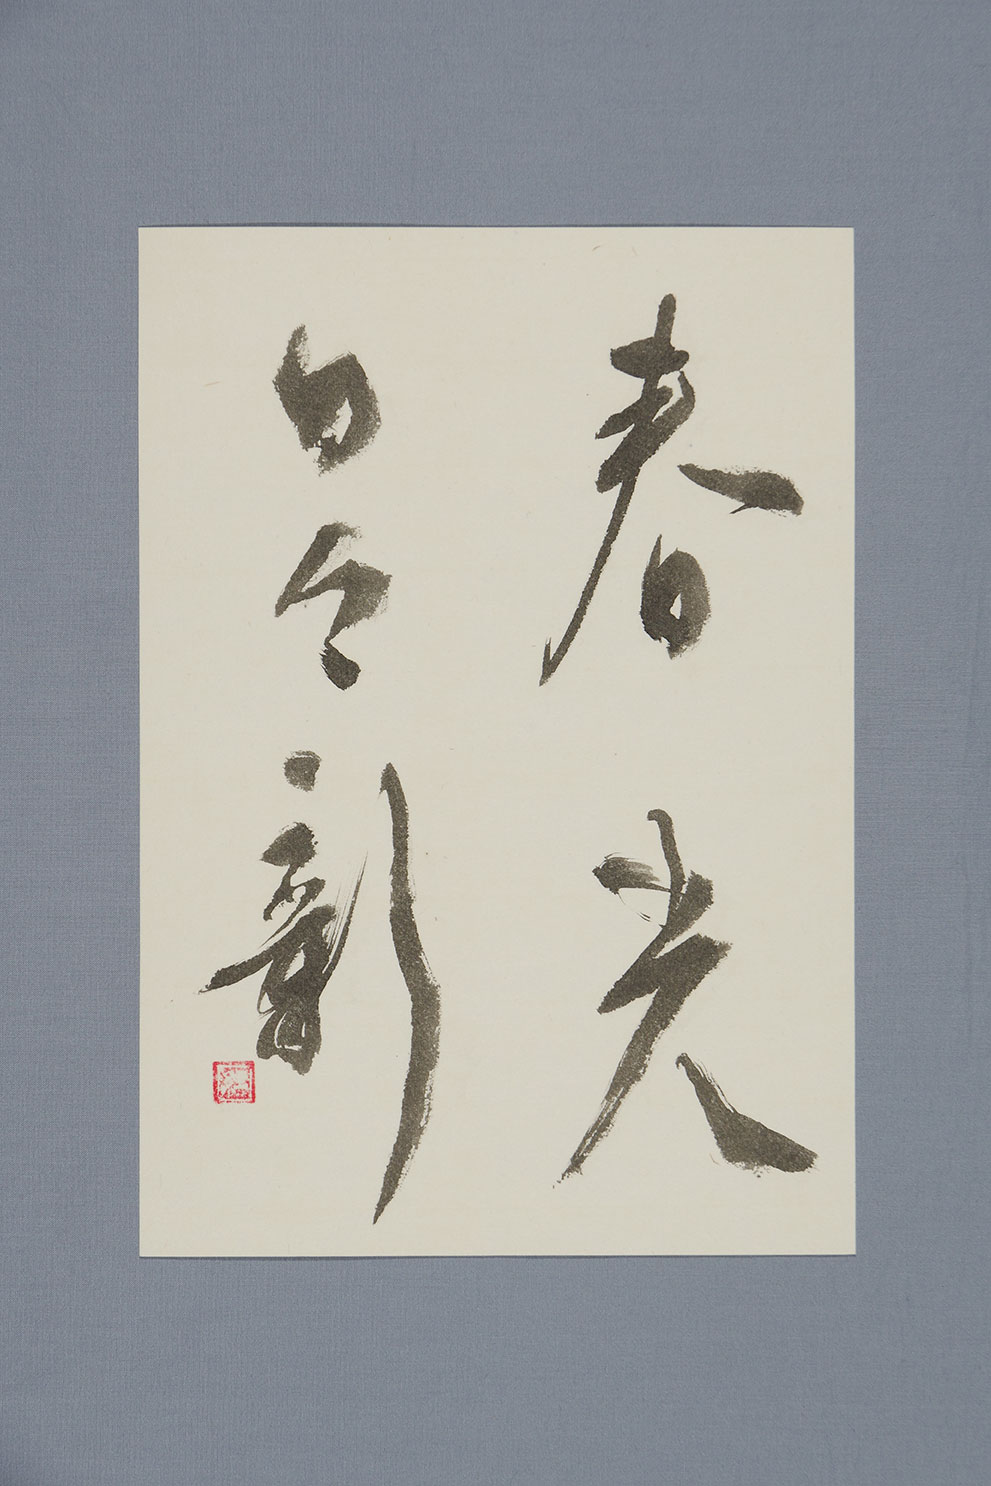 春光
日々新